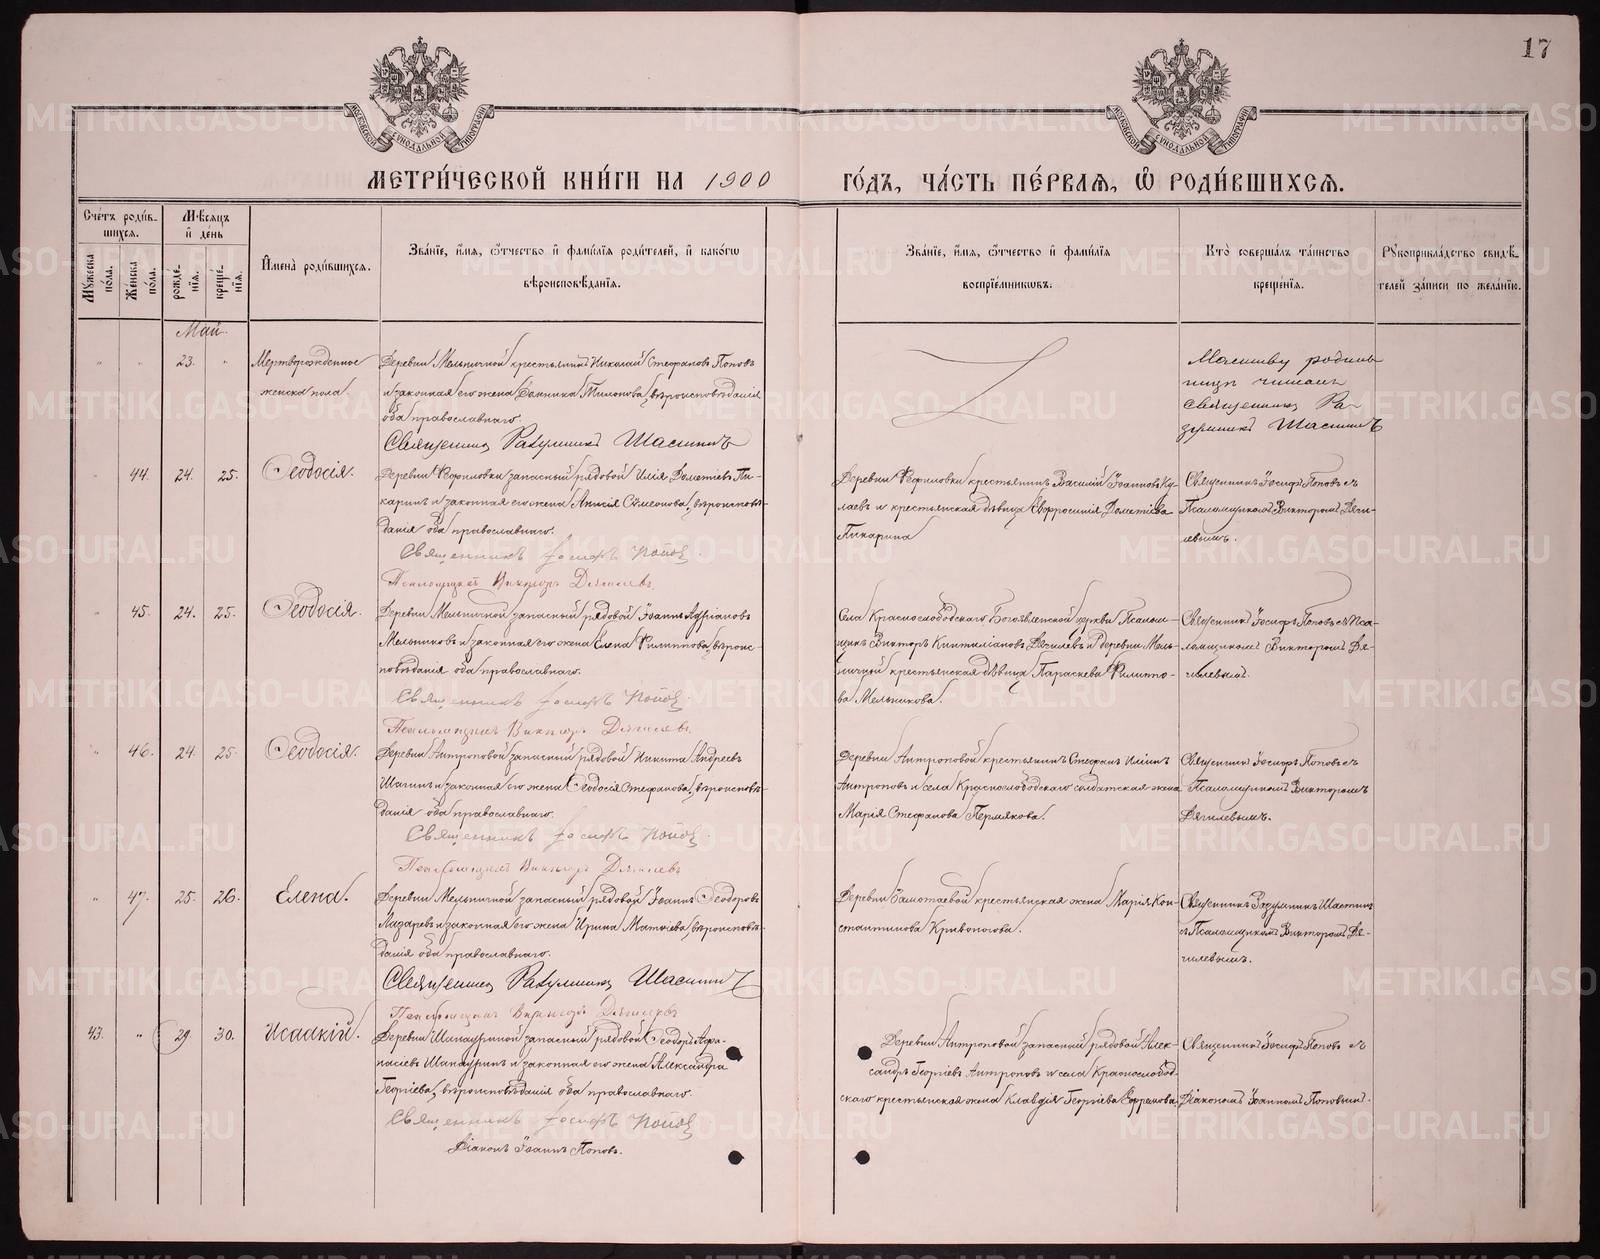 17
МОСКОВСКОЙ СѴНОДАЛЬНОЙ ТИПОГРАФІИ
МОСКОВСКОЙ СѴНОДАЛЬНОЙ ТИПОГРАФІИ
МЕТРИ́ЧЕСКОЙ КНИ́ГИ НА 1900 ГО́ДЪ, ЧА́СТЬ ПЕ́РВАѦ, Ѽ РОДИ́ВШИХСѦ.
Сче́тъ роди́в-
шихсѧ.
Мꙋ́жеска по́ла.
Же́нска по́ла.
Мѣ́сѧцъ и҆ де́нь
рожде́-
нїѧ.
креще́-
нїѧ.
И҆мена̀ роди́вшихсѧ.
Зва́нїе, и҆́мѧ, ѻ҆́тчество и҆ фами́лїѧ роди́телей, и҆ како́гѡ
вѣроисповѣ́данїѧ.
Зва́нїе, и҆́мѧ, ѻ҆́тчество и҆ фами́лїѧ
воспрїе́мникѡвъ.
Кто̀ соверша́лъ та́инство
креще́нїѧ.
Рꙋкоприкла́дство свидѣ́-
телей за́писи по жела́нїю.
Май.
" " 23. "
Мертворожденное
женска пола.
Деревни Мельничной крестьянинъ Николай Стефановъ Поповъ
и законная его жена Домника Тимонова, вѣроисповѣданія
оба православнаго.
Священникъ Разумникъ Шастинъ
Молитву родиль
ницѣ читалъ
Священникъ Ра-
зумникъ Шастинъ
" 44. 24. 25. Ѳеодосія.
Деревни Ѳефиловки запасный рядовой Илія Дометіевъ Пи-
каринъ и законная его жена Анисія Симеонова, вѣроисповѣ-
данія оба православнаго.
Священникъ Іосифъ Поповъ.
Псаломщикъ Викторъ Дягилевъ.
Деревни Ѳефиловки крестьянинъ Василій Іоанновъ Ку-
лаевъ и крестьянская дѣвица Евфросинія Дометіева
Пикарина
Священникъ Іосифъ Поповъ съ
Псаломщикомъ Викторомъ Дяги-
левымъ.
" 45. 24. 25. Ѳеодосія.
Деревни Мельничной запасный рядовой Іоаннъ Адріановъ
Мельниковъ и законная его жена Елена Филиппова, вѣроис-
повѣданія оба православнаго.
Священникъ Іосифъ Поповъ.
Псаломщикъ Викторъ Дягилевъ.
Села Краснослободского Богоявленской церкви Псалом-
щикъ Викторъ Дягилевъ и деревни Мель-
ничной крестьянская дѣвица Параскева Филиппо-
ва Мельникова.
Священникъ Іосифъ Поповъ съ Пса-
ломщикомъ Викторомъ Дя-
гилевымъ.
" 46. 24. 25. Ѳеодосія.
Деревни Антроповой запасный рядовой Никита Андреевъ
Шагинъ и законная его жена Ѳеодосія Стефанова, вѣроисповѣ-
данія оба православнаго.
Священникъ Іосифъ Поповъ.
Псаломщикъ Викторъ Дягилевъ
Деревни Антроповой крестьянинъ Стефанъ Иліинъ
Антроповъ и села Краснослободскаго солдатская жена
Марія Стефанова Пермякова.
Священникъ Іосифъ Поповъ съ
Псаломщикомъ Викторомъ
Дягилевымъ.
" 47. 25. 26. Елена.
Деревни Мельничной запасный рядовой Іоаннъ Ѳеодоровъ
Лазаревъ и законная его жена Ирина Матѳіева, вѣроисповѣ-
данія оба православнаго.
Священникъ Разумникъ Шастинъ
Псаломщикъ Викторъ Дягилевъ
Деревни крестьянская жена Марія Кон-
стантинова Кривоногова.
Священникъ Разумникъ Шастинъ
съ Псаломщикомъ Викторомъ Дя-
гилевымъ.
43. " 29. 30. Исаакій.
Деревни Шипауриной запасный рядовой Ѳеодоръ Аѳа-
насіевъ Шипауринъ и законная его жена Александра
Георгіева, вѣроисповѣданія оба православнаго.
Священникъ Іосифъ Поповъ
Діаконъ Іоаннъ Поповъ.
Деревни Антроповой запасный рядовой Алек-
сандръ Георгіевъ Антроповъ и села Краснослобод-
скаго крестьянская жена Клавдія Георгіева Ефремова.
Священникъ Іосифъ Поповъ съ
Діакономъ Іоанномъ Поповымъ.
METRIKI.GASO-URAL.RU